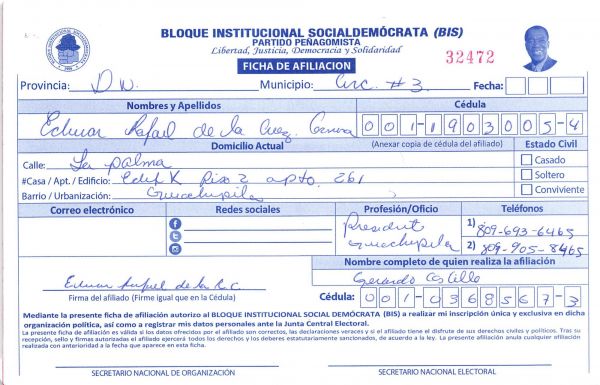 BLOQUE INSTITUCIONAL SOCIALDEMÓCRATA (BIS)
PARTIDO PEÑAGOMISTA
Libertad, Justicia, Democracia y Solidaridad
FICHA DE AFILIACION
32472
Provincia: D.N. Municipio: Circ. #3 Fecha:
Nombres y Apellidos Cédula
Edwar Rafael de la Cruz 001-1903005-4
Domicilio Actual (Anexar copia de cédula del afiliado) Estado Civil
Calle: La palma Casado
#Casa / Apt. / Edificio: Edif K Piso 2 apto. 261 Soltero
Barrio / Urbanización: Guachupita Conviviente
Correo electrónico Redes sociales Profesión/Oficio Teléfonos
President Guachupita
1) 809-693-6465
2) 809-905-8465
Nombre completo de quien realiza la afiliación
Gerardo Castillo
Edwar Rafael de la R.C.
Firma del afiliado (Firme igual que en la Cédula) Cédula: 001-0368567-3
Mediante la presente ficha de afiliación autorizo al BLOQUE INSTITUCIONAL SOCIAL DEMÓCRATA (BIS) a realizar mi inscripción única y exclusiva en dicha
organización política, así como a registrar mis datos personales ante la Junta Central Electoral.
La presente ficha de afiliación es válida si los datos ofrecidos por el afiliado son correctos, las declaraciones veraces y el afiliado tiene el disfrute de sus derechos civiles y políticos. Tras su
recepción, sello y firmas autorizadas el afiliado ejercerá todos los derechos y los deberes estatutariamente sancionados, de acuerdo a la ley. La presente afiliación anula cualquier afiliación
realizada con anterioridad a la fecha que aparece en esta ficha.
SECRETARIO NACIONAL DE ORGANIZACIÓN SECRETARIO NACIONAL ELECTORAL